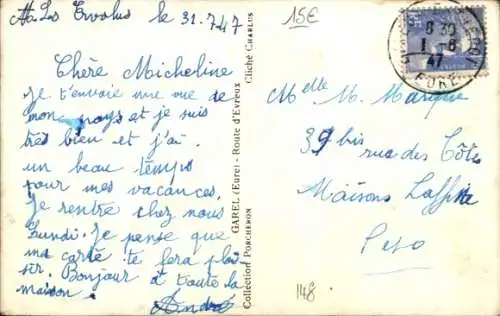 le 31.7.47
Chère Micheline
Je t'envoie une vue de
mon pays et je suis
très bien et j'ai
un beau temps
pour mes vacances.
Je rentre chez nous
Lundi. Je pense que
ma carte te fera plai
sir. Bonjour à toute la
maison.
André
GAREL (Eure) - Route d'Evreux
Collection PORCHERON
Cliché CHARLUS
15€
8 30
1-8
47
EURE
Melle M. Marique
39 bis
rue des Côtes
Maisons Laffitte
148